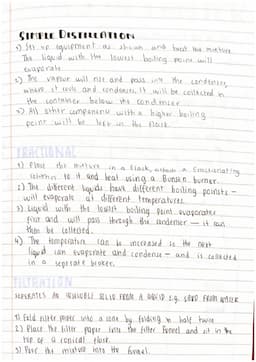 SIMPLE DISTILLATION
1) Set up equipment as shown and heat the mixture
The liquid with the lowest boiling point will
evaporate.
2) The vapour will rise and pass into the condenser,
where it cools and condenses. It will be collected in
the container below the condenser.
3) All other components with a higher boiling
point will be left in the flask.
FRACTIONAL
1) Place the mixture in a flask, attach a fractionating
column to it and heat using a Bunsen burner.
2) The different liquids have different boiling points -
will evaporate at different temperatures.
3) Liquid with the lowest boiling point evaporates
first and will pass through the condenser - it can
then be collected.
4) The temperature can be increased so the next
liquid can evaporate and condense - and is collected
in a seperate beaker.
FILTRATION
SEPERATES AN INSOLUBLE SOLID FROM A LIQUID e.g. SAND FROM WATER
1) Fold filter paper into a cone by folding in half twice
2) Place the filter paper into the filter funnel and sit in the
top of a conical flask.
3) Pour the mixture into the funnel.